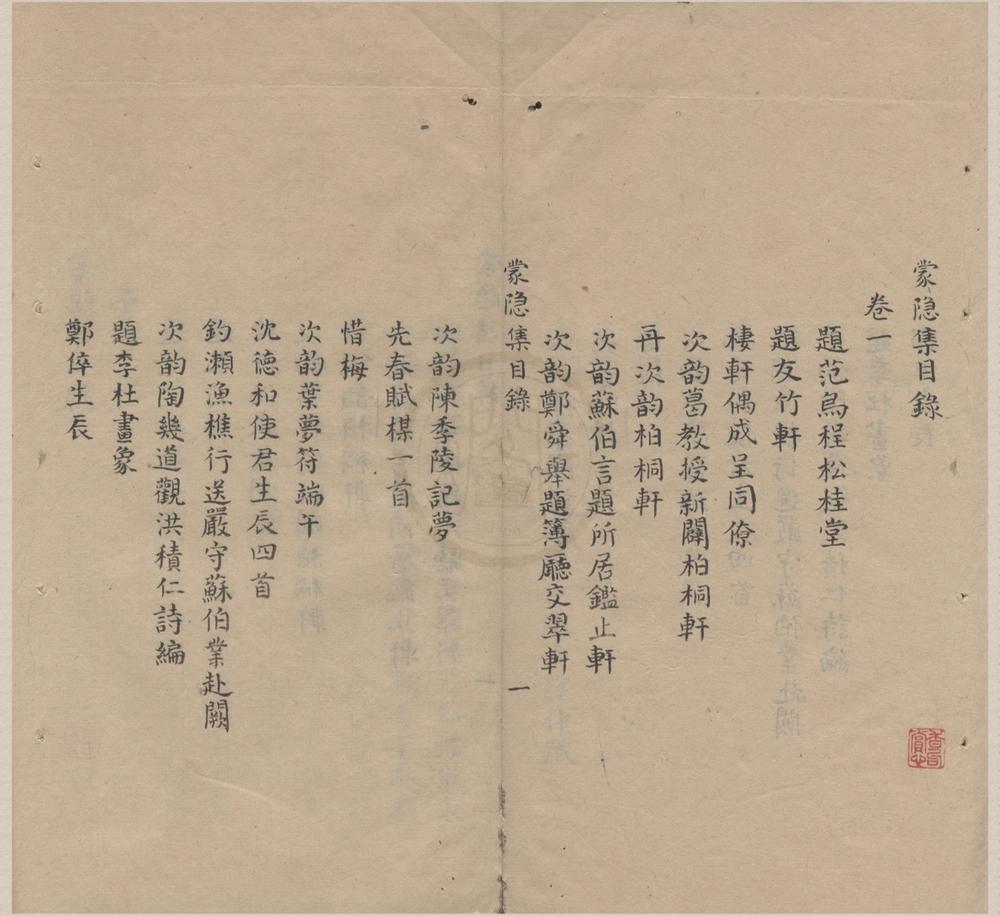 蒙隐集目錄
卷一
題范烏程松桂堂
題友竹軒
棲軒偶成呈同僚
次韵葛教授新闢柏桐軒
再次韵柏桐軒
次韵蘇伯言題所居鑑止軒
次韵鄭舜舉題簿廳交翠軒
蒙隐集目錄 一
次韵陳季陵記夢
先春賦楳一首
惜梅
次韵葉夢符端午
沈德和使君生辰四首
釣瀨漁樵行送嚴守蘇伯業赴闕
次韵陶幾道觀洪積仁詩編
題李杜畫象
鄭倅生辰